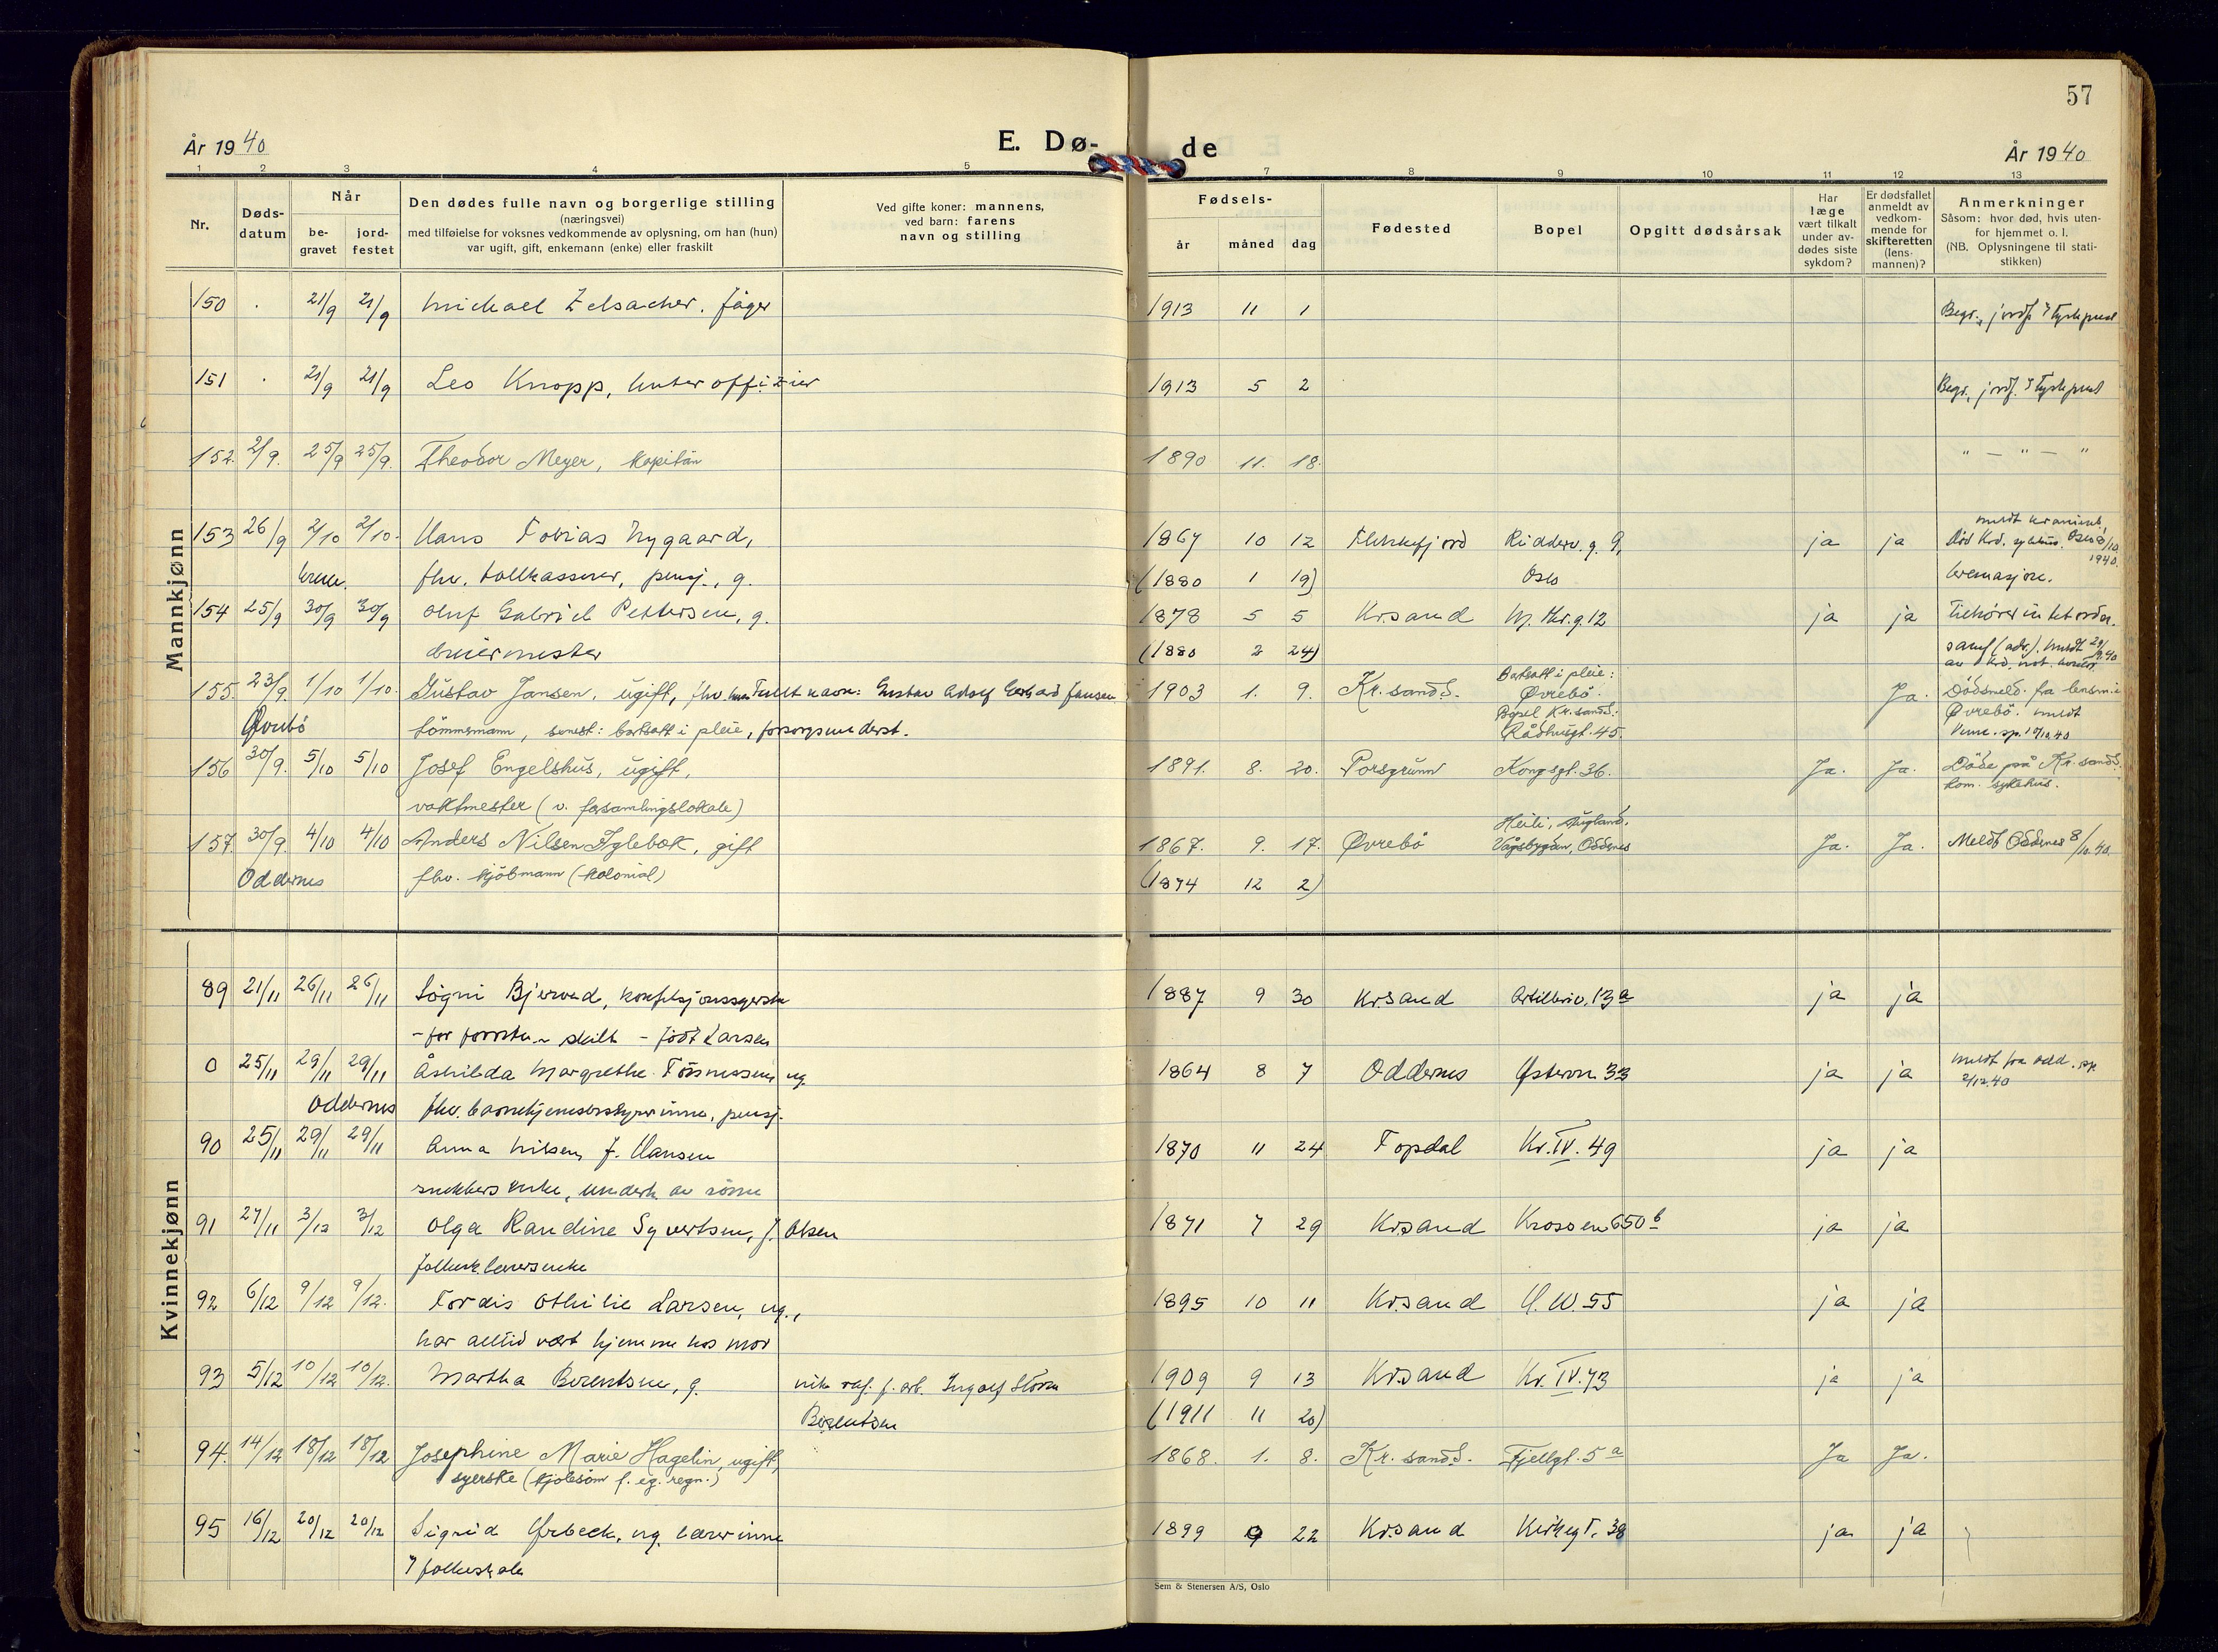 57
År 1940
E. Dø-
de
År 1940
1 2 3 4 5 7 8 9 10 11 12 13
Nr.
Døds-
datum
Når
be-
gravet
jord-
festet
Den dødes fulle navn og borgerlige stilling
(næringsvei)
med tilføielse for voksnes vedkommende av oplysning, om han (hun)
var ugift, gift, enkemann (enke) eller fraskilt
Ved gifte koner: mannens,
ved barn: farens
navn og stilling
Fødsels-
år måned dag
Fødested
Bopel
Opgitt dødsårsak
Har
læge
vært tilkalt
under av-
dødes siste
sykdom?
Er dødsfallet
anmeldt av
vedkom-
mende for
skifteretten
(lens-
mannen)?
Anmerkninger
Såsom: hvor død, hvis uten-
for hjemmet o. l.
(NB. Oplysningene til stati-
stikken)
Mannkjønn
150 . 21/9 21/9 Michael Zelsacher. Jäger 1913 11 1 Begr., jordf.
151 . 21/9 21/9 Leo Knopp, Unteroffizier 1913 5 2 Begr., jordf.
152. 21/9. 25/9 25/9. Theodor Meyer, kapitän 1890 11. 18. " — " — "
153 26/9 2/10 2/10. Hans Tobias Nygaard, 1867 10 12 Flekkefjord Ridderv. g. 9, ja ja
krem. fhv. tollkasserer, pensj., g. (1880 1 19) Oslo kremasjon.
154 25/9 30/9 30/9 Oluf Gabriel Pettersen, g. 1878 5 5 Kr.sand ja ja
(1880 2 24)
155. 23/9. 1/10 1/10. Gustav Jansen, ugift, Fullt navn: Gustav Adolf Gerhard Jansen 1903 1. 9. Kr.sandS. Bortsatt i pleie: Øvrebö. Ja. Dödsmeld. fra lensm. i
Øvrebö tömmermann, senest: bortsatt i pleie, forsorgsunderst. Bopel Kr.sandS. Rådhusgt. 45. Øvrebö. meldt
156 30/9. 5/10 5/10 Josef Engelshus, ugift, 1891. 8. 20. Porsgrunn Kongsgt. 36. Ja. Ja. Döde på Kr.sandS.
vaktmester (v. forsamlingslokale) kom. sykehus.
157. 30/9. 4/10 4/10 Anders Nilsen Iglebæk, gift 1867. 9. 17. Øvrebö Vågsbygden, Oddernes Ja. Ja. Meldt Oddernes 8/10.40.
Oddernes fhv. kjöbmann (kolonial) (1874 12 2)
Kvinnekjønn
89 21/11 26/11 26/11 Søgni Bjerved, konfeksjonssyerske 1887 9 30 Kr.sand Artilleriv. 13a ja ja
- for forretn. skilt - født Larsen
0 25/11 29/11 29/11 Åshilda Margrethe Tönnessen, ug. 1864 8 7 Oddernes Østervn 33 ja ja meldt fra Odd. sp.
Oddernes fhv. barnehjemsbestyrerinne, pensj. 2/12.40
90 25/11 29/11 29/11 Anna Nilsen f. Hansen 1870 11 24 Topdal Kr. IV. 49 ja ja
snekkers enke, underh. av sönn
91 27/11 3/12 3/12 Olga Randine Syvertsen, f. Olsen 1871 7 29 Kr.sand Krossen 650b ja ja
folkesk.lærers enke
92 6/12 9/12 9/12. Tordis Othilie Larsen, ug., 1895 10 11 Kr.sand 55 ja ja
har alltid vært hjemme hos mor
93 5/12 10/12 10/12. Martha Berentsen, g. nik. raf. f. arb. Ingolf Berentsen 1909 9 13 Kr.sand Kr. IV. 73 ja ja
(1911 11 20)
94. 14/12 18/12 18/12 Josephine Marie Hagelin, ugift, 1868. 1. 8. Kr.sandS. Fjellgt. 5a Ja Ja.
syerske (kjolesöm f. eg. regn.)
95 16/12 20/12 20/12 Sigrid Ørbeck, ug. lærerinne 1899 9 22 Kr.sand Kirkegt. 38 ja ja
i folkeskole
Sem & Stenersen A/S, Oslo